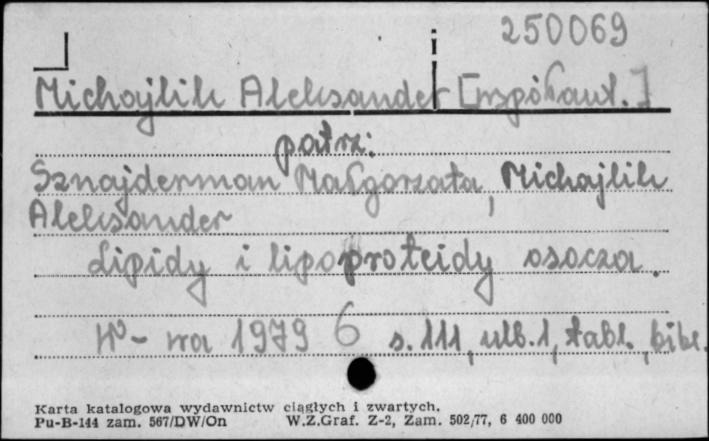 250069
Michajlik Aleksander [współaut.]
patrz:
Sznajderman Małgorzata, Michajlik
Aleksander
Lipidy i lipoproteidy osocza.
W-wa 1979 6 s. 111, ulb. 1, tabl., bibl.
Karta katalogowa wydawnictw ciągłych i zwartych.
Pu-B-144 zam. 567/DW/On W.Z.Graf. Z-2, Zam. 502/77, 6 400 000